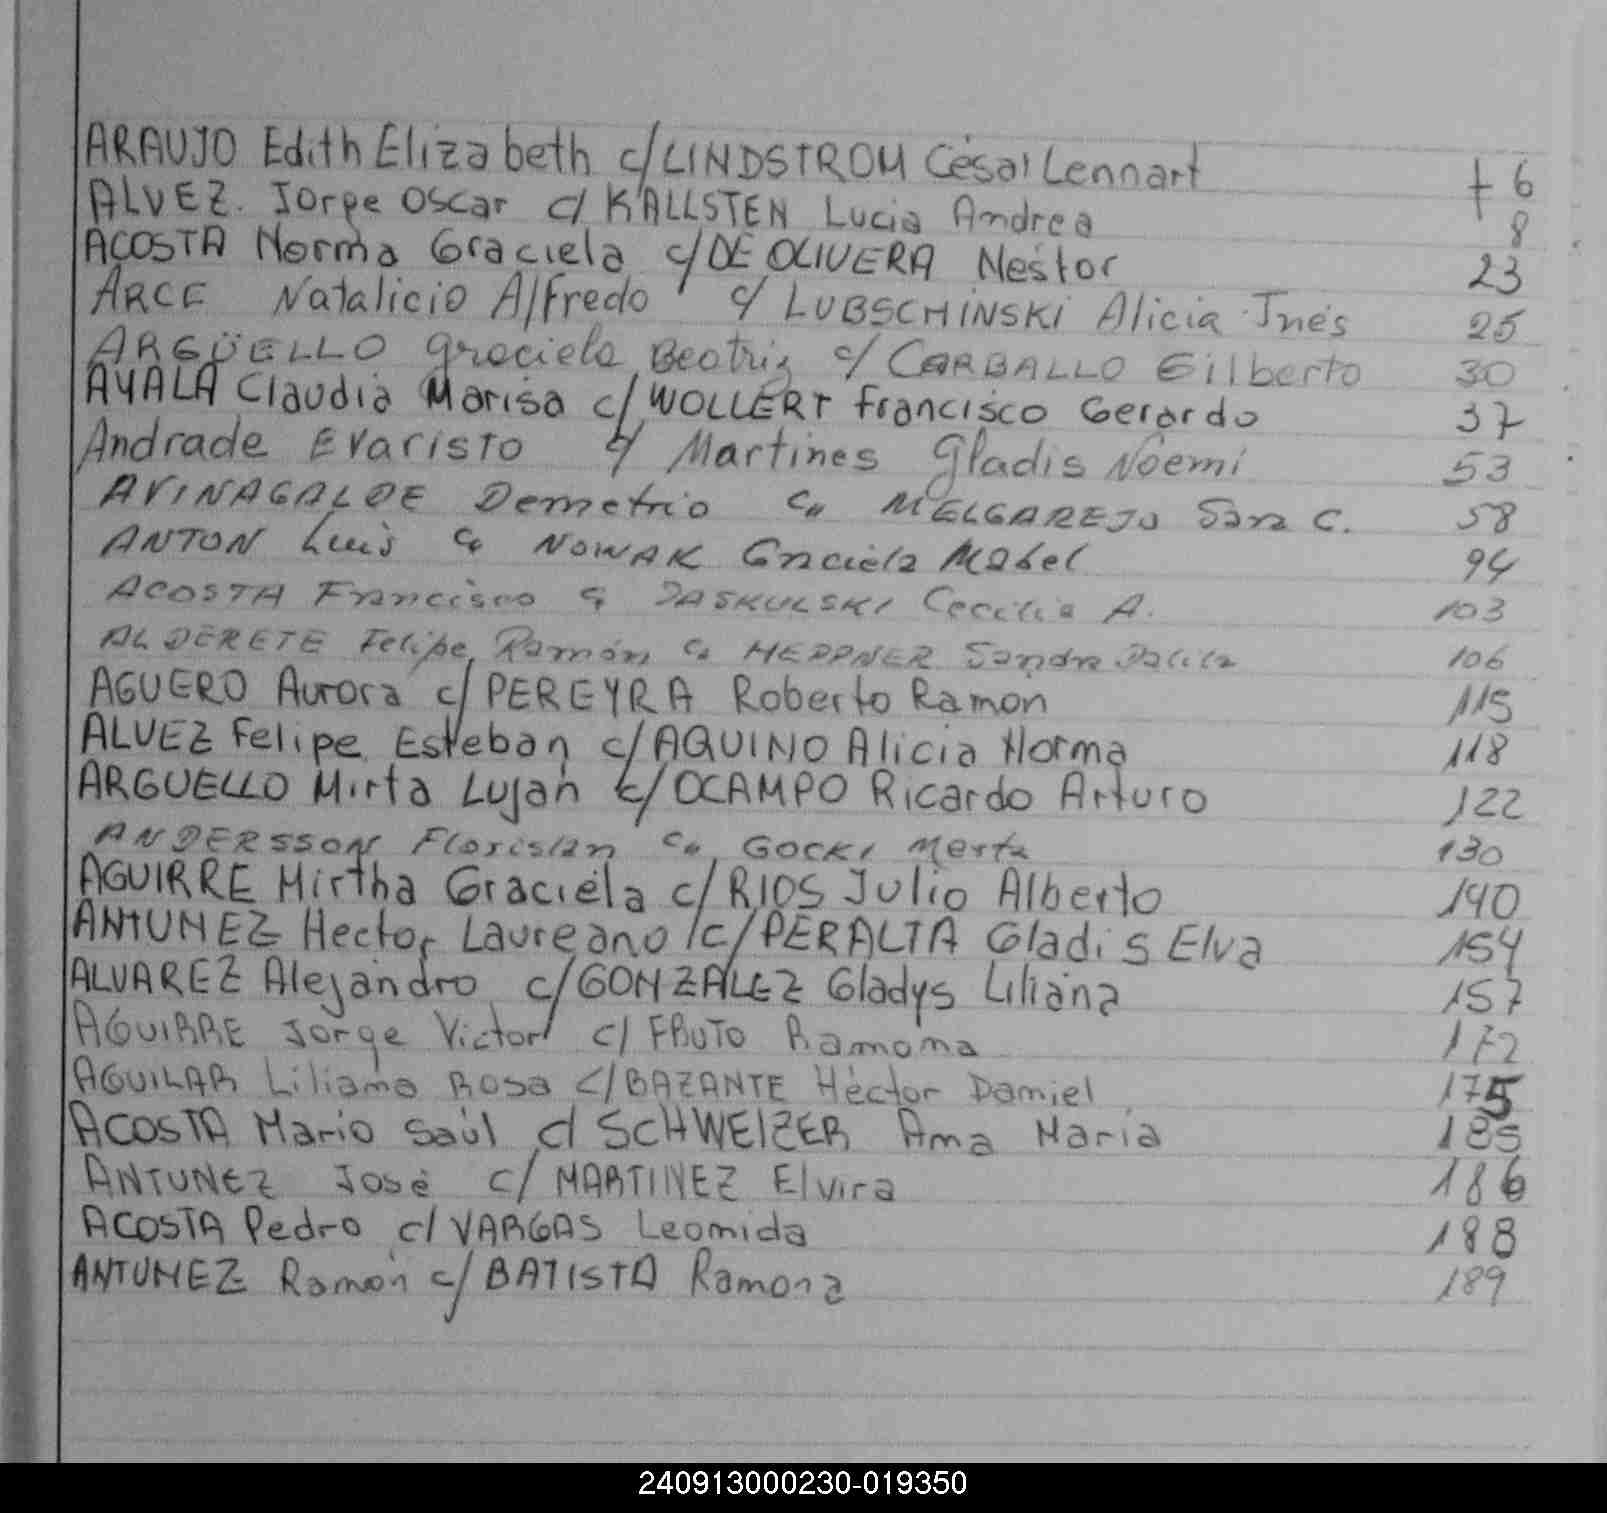 ARAUJO Edith Elizabeth c/ LINDSTROM César Lennart + 6
ALVEZ. Jorge Oscar c/ KALLSTEN Lucia Andrea 8
ACOSTA Norma Graciela c/ DE OLIVERA Nestor 23
ARCE Natalicio Alfredo c/ LUBSCHINSKI Alicia Inés 25
ARGÜELLO Graciela Beatriz c/ CARBALLO Gilberto 30
AYALA Claudia Marisa c/ WOLLERT Francisco Gerardo 37
Andrade Evaristo c/ Martines Gladis Noemí 53
AVINAGALDE Demetrio c/ MELGAREJO Sara C. 58
ANTON Luis c/ NOWAK Graciela Mabel 94
ACOSTA Francisco c/ PASKULSKI Cecilia A. 103
ALDERETE Felipe Ramón c/ HEPPNER Sandra Dalila 106
AGUERO Aurora c/ PEREYRA Roberto Ramon 115
ALVEZ Felipe Esteban c/ AQUINO Alicia Norma 118
ARGUELLO Mirta Lujan c/ OCAMPO Ricardo Arturo 122
ANDERSSON Florislan c/ GOCKI Merta 130
AGUIRRE Mirtha Graciela c/ RIOS Julio Alberto 140
ANTUNEZ Hector Laureano c/ PERALTA Gladis Elva 154
ALVAREZ Alejandro c/ GONZALEZ Gladys Liliana 157
AGUIRRE Jorge Victor c/ FRUTO Ramona 172
AGUILAR Liliana Rosa c/ BAZANTE Héctor Daniel 175
ACOSTA Mario Saúl c/ SCHWEIZER Ana Maria 185
ANTUNEZ José c/ MARTINEZ Elvira 186
ACOSTA Pedro c/ VARGAS Leonida 188
ANTUNEZ Ramón c/ BATISTA Ramona 189
240913000230-019350